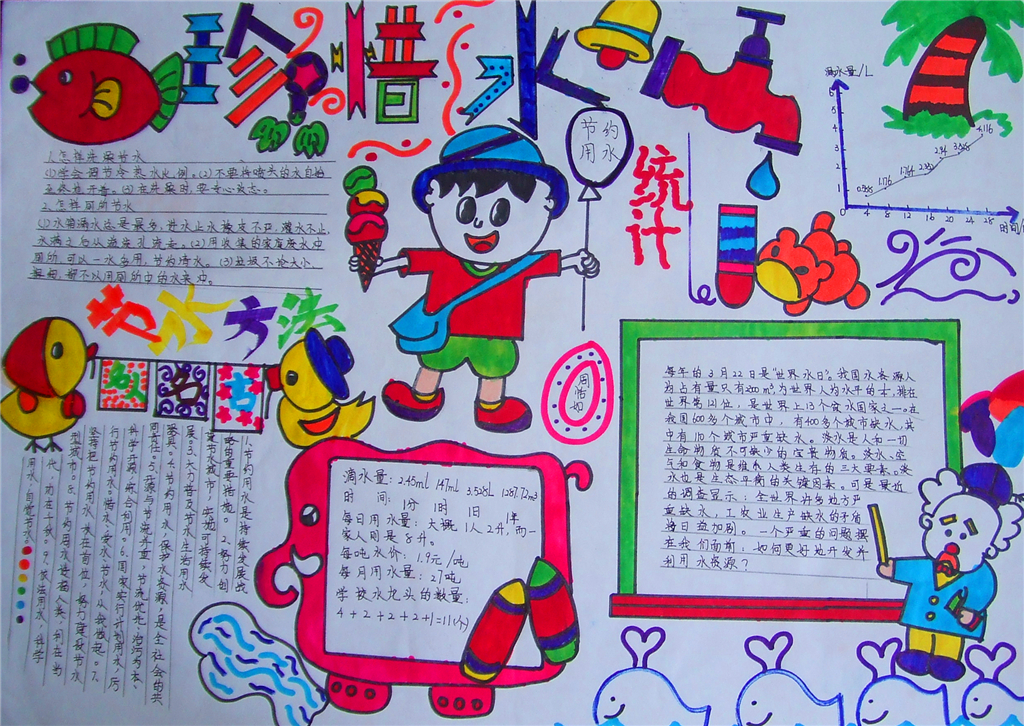 珍惜水
节约
用水
1.怎样洗澡节水
(1)学会调节冷热水比例。(2)不要将喷头的水自始
至终地开着。(3)在洗澡时要专心致志。
2.怎样厕所节水
(1)水箱漏水总是最多,进水止水橡皮不严,灌水不止,
水满之后从溢流孔流走。(2)用收集的家庭废水冲
厕所,可以一水多用,节约清水。(3)垃圾不论大小、
粗细,都不从用厕所中的水来冲。
节水方法
名言
1.节约用水是持续发展战
略的重要措施。2.努力创
建节水城市,实现可持续发
展。3.大力普及节水生活用水
器具。4.节约用水,保护水资源,是全社会的共
同责任。5.开源与节流并重,节流优先,治污为本,
科学开源,综合利用。6.国家实行计划用水,厉
行节约用水。惜水、爱水、节水,从我做起。7.
坚持把节约用水放在首位,努力建设节水
型城市。8.节约用水造福人类,利在当
代,功在千秋。9.依法用水,科学
用水,自觉节水。
滴水量: 2.45ml 147ml 3.528L 1287.72m³
时 间: 1分 1时 1日 1年
每日用水量:大概1人2升,而一
家人则是8升。
每吨水价:1.9元/吨
每月用水量:27吨
学校水龙头的数量:
4+2+2+2+1=11(个)
统计
滴水量/L
6
5
4
3
2
1
0
1.176
1.764
2.94
4.116
4 8 12 16 20 24 28
时间/
每年的3月22日是"世界水日"。我国水资源人
均占有量只有2200m³为世界人均水平的4,排在
世界第121位,是世界上13个贫水国家之一。在
我国600多个城市中,有400多个城市缺水,其
中有110个城市严重缺水。淡水是人和一切
生命物质不可缺少的宝贵物质。淡水、空
气和食物是维系人类生存的三大要素。淡
水也是生态平衡的关键因素。可是最近
的调查显示:全世界许多地方严
重缺水,工农业生产缺水的矛盾
将日益加剧。一个严重的问题摆
在我们面前,如何更好地开发并
利用水资源?